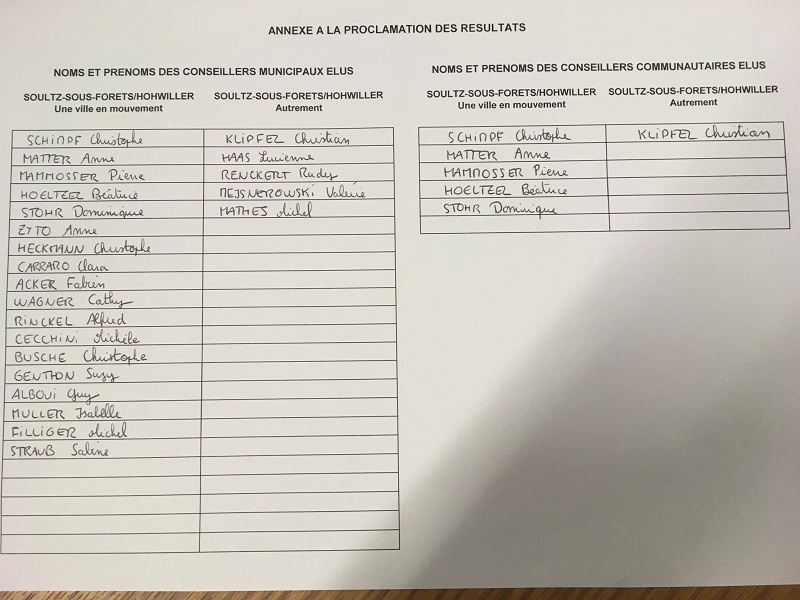 ANNEXE A LA PROCLAMATION DES RESULTATS
NOMS ET PRENOMS DES CONSEILLERS MUNICIPAUX ELUS
SOULTZ-SOUS-FORETS/HOHWILLER
Une ville en mouvement
SOULTZ-SOUS-FORETS/HOHWILLER
Autrement
SCHIMPF Christophe
KLIPFEL Christian
MATTER Anne
HAAS Lucienne
MAMMOSSER Pierre
RENCKERT Rudy
HOELTZEL Béatrice
MEJSNEROWSKI Valérie
STOHR Dominique
MATHES Michel
ZYTO Anne
HECKMANN Christophe
CARRARO Clara
ACKER Fabien
WAGNER Cathy
RINCKEL Alfred
CECCHINI Michèle
BUSCHE Christophe
GENTHON Suzy
ALBOUI Guy
MULLER Isabelle
FILLIGER Michel
STRAUB Sabine
NOMS ET PRENOMS DES CONSEILLERS COMMUNAUTAIRES ELUS
SOULTZ-SOUS-FORETS/HOHWILLER
Une ville en mouvement
SOULTZ-SOUS-FORETS/HOHWILLER
Autrement
SCHIMPF Christophe
KLIPFEL Christian
MATTER Anne
MAMMOSSER Pierre
HOELTZEL Béatrice
STOHR Dominique